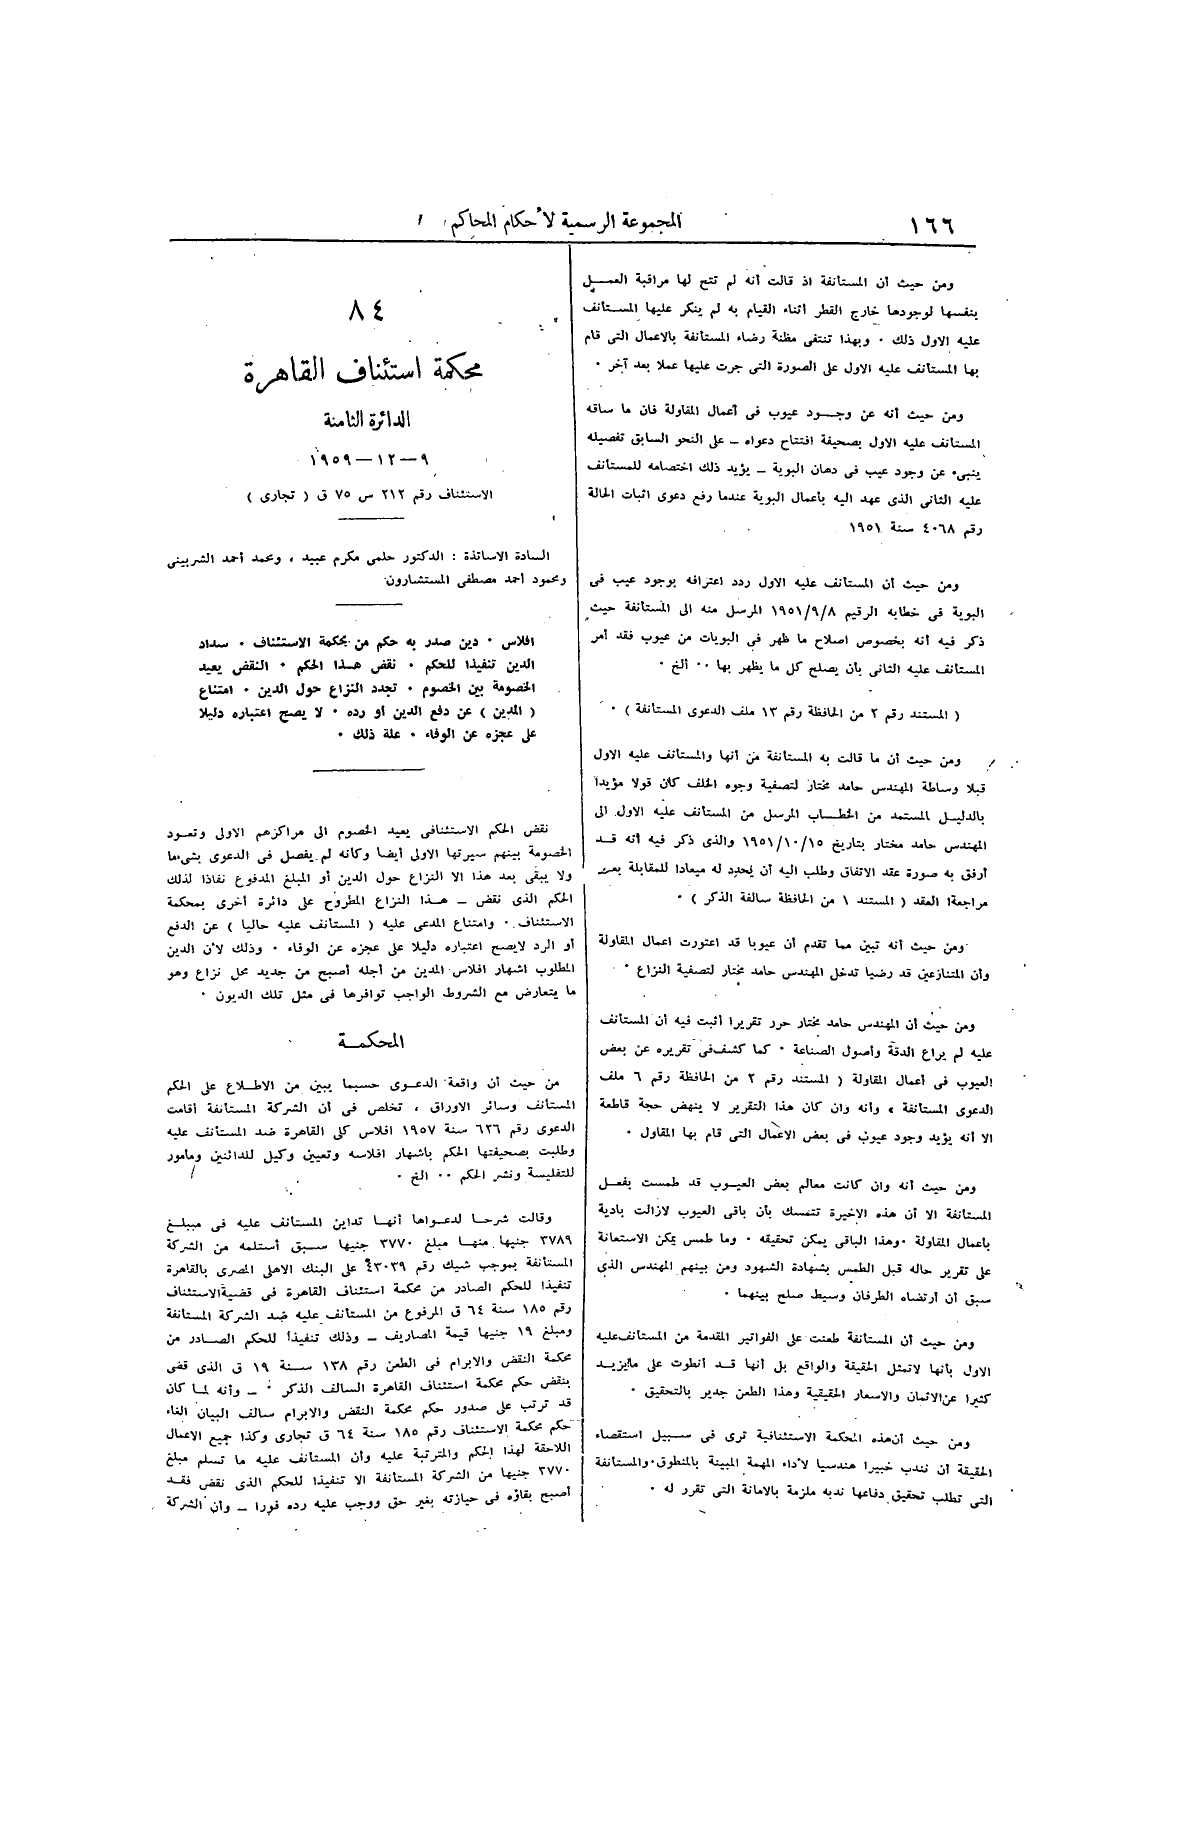 ١٦٦
المجموعة الرسمية لأحكام المحاكم
ومن حيث أن المستأنفة اذ قالت أنه لم تتح لها مراقبة العمــل
بنفسها لوجودها خارج القطر أثناء القيام به لم ينكر عليها المستأنف
عليه الاول ذلك ٠ وبهذا تنتفى مظنة رضاء المستأنفة بالاعمال التى قام
بها المستأنف عليه الاول على الصورة التى جرت عليها عملا بعد آخر ٠
ومن حيث أنه عن وجــود عيوب فى أعمال المقاولة فان ما ساقه
المستأنف عليه الاول بصحيفة افتتاح دعواه ــ على النحو السابق تفصيله
ينبىء عن وجود عيب فى دهان البوية ــ يؤيد ذلك اختصامه للمستأنف
عليه الثانى الذى عهد اليه بأعمال البوية عندما رفع دعوى اثبات الحالة
رقم ٤٠٦٨ سنة ١٩٥١
ومن حيث أن المستأنف عليه الاول ردد اعترافه بوجود عيب فى
البوية فى خطابه الرقيم ١٩٥١/٩/٨ المرسل منه الى المستأنفة حيث
ذكر فيه أنه بخصوص اصلاح ما ظهر فى البويات من عيوب فقد أمر
المستأنف عليه الثانى بأن يصلح كل ما يظهر بها ٠٠ ألخ ٠
( المستند رقم ٢ من الحافظة رقم ١٣ ملف الدعوى المستأنفة ) ٠
ومن حيث أن ما قالت به المستأنفة من أنها والمستأنف عليه الاول
قبلا وساطة المهندس حامد مختار لتصفية وجوه الخلف كان قولا مؤيدا
بالدليل المستمد من الخطــاب المرسل من المستأنف عليه الاول الى
المهندس حامد مختار بتاريخ ١٩٥١/١٠/١٥ والذى ذكر فيه أنه قــد
أرفق به صورة عقد الاتفاق وطلب اليه أن يحدد له ميعادا للمقابلة بعد
مراجعة العقد ( المستند ١ من الحافظة سالفة الذكر ) ٠
ومن حيث أنه تبين مما تقدم أن عيوبا قد اعتورت اعمال المقاولة
وأن المتنازعين قد رضيا تدخل المهندس حامد مختار لتصفية النزاع ٠
ومن حيث أن المهندس حامد مختار حرر تقريرا أثبت فيه أن المستأنف
عليه لم يراع الدقة وأصول الصناعة ٠ كما كشف فى تقريره عن بعض
العيوب فى أعمال المقاولة ( المستند رقم ٢ من الحافظة رقم ٦ ملف
الدعوى المستأنفة » وأنه وان كان هذا التقرير لا ينهض حجة قاطعة
الا أنه يؤيد وجود عيوب فى بعض الاعمال التى قام بها المقاول ٠
ومن حيث أنه وان كانت معالم بعض العيــوب قد طمست بفعــل
المستأنفة الا أن هذه الاخيرة تتمسك بأن باقى العيوب لازالت بادية
بأعمال المقاولة ٠ وهذا الباقى يمكن تحقيقه ٠ وما طمس يمكن الاستعانة
على تقرير حاله قبل الطمس بشهادة الشهود ومن بينهم المهندس الذى
سبق أن أرتضاه الطرفان وسيط صلح بينهما ٠
ومن حيث أن المستأنفة طعنت على الفواتير المقدمة من المستأنف عليه
الاول بأنها لاتمثل الحقيقة والواقع بل أنها قــد أنطوت على مايزيــد
كثيرا عن الاثمان والاسعار الحقيقية وهذا الطعن جدير بالتحقيق ٠
ومن حيث أن هذه المحكمة الاستئنافية ترى فى سـبيل استقصاء
الحقيقة أن تندب خبيرا هندسيا لأداء المهمة المبينة بالمنطوق ٠ والمستأنفة
التى تطلب تحقيق دفاعها ندبه ملزمة بالامانة التى تقرر له ٠
٨٤
محكمة استئناف القاهرة
الدائرة الثامنة
٩ — ١٢ — ١٩٥٩
الاستئناف رقم ٢١٢ س ٧٥ ق ( تجارى )
السادة الاساتذة : الدكتور حلمى مكرم عبيد ، ومحمد أحمد الشربينى
ومحمود أحمد مصطفى المستشارون
افلاس ٠ دين صدر به حكم من محكمة الاستئناف ٠ سداد
الدين تنفيذا للحكم ٠ نقض هــذا الحكم ٠ النقض يعيد
الخصومة بين الخصوم ٠ تجدد النزاع حول الدين ٠ امتناع
( المدين ) عن دفع الدين أو رده ٠ لا يصح اعتباره دليلا
على عجزه عن الوفاء ٠ علة ذلك ٠
نقض الحكم الاستئنافى يعيد الخصوم الى مراكزهم الاولى وتعــود
الخصومة بينهم سيرتها الاولى أيضا وكأنه لم يفصل فى الدعوى بشىء ما
ولا يبقى بعد هذا الا النزاع حول الدين أو المبلغ المدفوع نفاذا لذلك
الحكم الذى نقض ــ هــذا النزاع المطروح على دائرة أخرى بمحكمة
الاستئناف ٠ وامتناع المدعى عليه ( المستأنف عليه حاليا ) عن الدفع
أو الرد لايصح اعتباره دليلا على عجزه عن الوفاء ٠ وذلك لأن الدين
المطلوب اشهار افلاس المدين من أجله أصبح من جديد محل نزاع وهو
ما يتعارض مع الشروط الواجب توافرها فى مثل تلك الديون ٠
المحكمــة
من حيث أن واقعة الدعــوى حسبما يبين من الاطــلاع على الحكم
المستأنف وسائر الاوراق ، تخلص فى أن الشركة المستأنفة أقامت
الدعوى رقم ٦٢٦ سنة ١٩٥٧ افلاس كلى القاهرة ضد المستأنف عليه
وطلبت بصحيفتها الحكم باشهار افلاسه وتعيين وكيل للدائنين ومأمور
للتفليسة ونشر الحكم ٠٠ الخ ٠
وقالت شرحــا لدعــواها أنهــا تداين المستأنف عليه فى مبلــغ
٣٧٨٩ جنيها منهــا مبلغ ٣٧٧٠ جنيها ســبق أستلمه من الشركة
المستأنفة بموجب شيك رقم ٤٣٠٣٩ على البنك الاهلى المصرى بالقاهرة
تنفيذا للحكم الصادر من محكمة استئناف القاهرة فى قضية الاستئناف
رقم ١٨٥ سنة ٦٤ ق المرفوع من المستأنف عليه ضد الشركة المستأنفة
ومبلغ ١٩ جنيها قيمة المصاريف ــ وذلك تنفيذا للحكم الصــادر من
محكمة النقض والابرام فى الطعن رقم ١٣٨ ســنة ١٩ ق الذى قضى
بنقض حكم محكمة استئناف القاهرة السالف الذكر ٠ ــ وأنه لمــا كان
قد ترتب على صدور حكم محكمة النقض والابرام سالف البيان الغاء
حكم محكمة الاستئناف رقم ١٨٥ سنة ٦٤ ق تجارى وكذا جميع الاعمال
اللاحقة لهذا الحكم والمترتبة عليه وأن المستأنف عليه ما تسلم مبلغ
٣٧٧٠ جنيها من الشركة المستأنفة الا تنفيذا للحكم الذى نقض فقــد
أصبح بقاؤه فى حيازته بغير حق ووجب عليه رده فورا ــ وأن الشركة